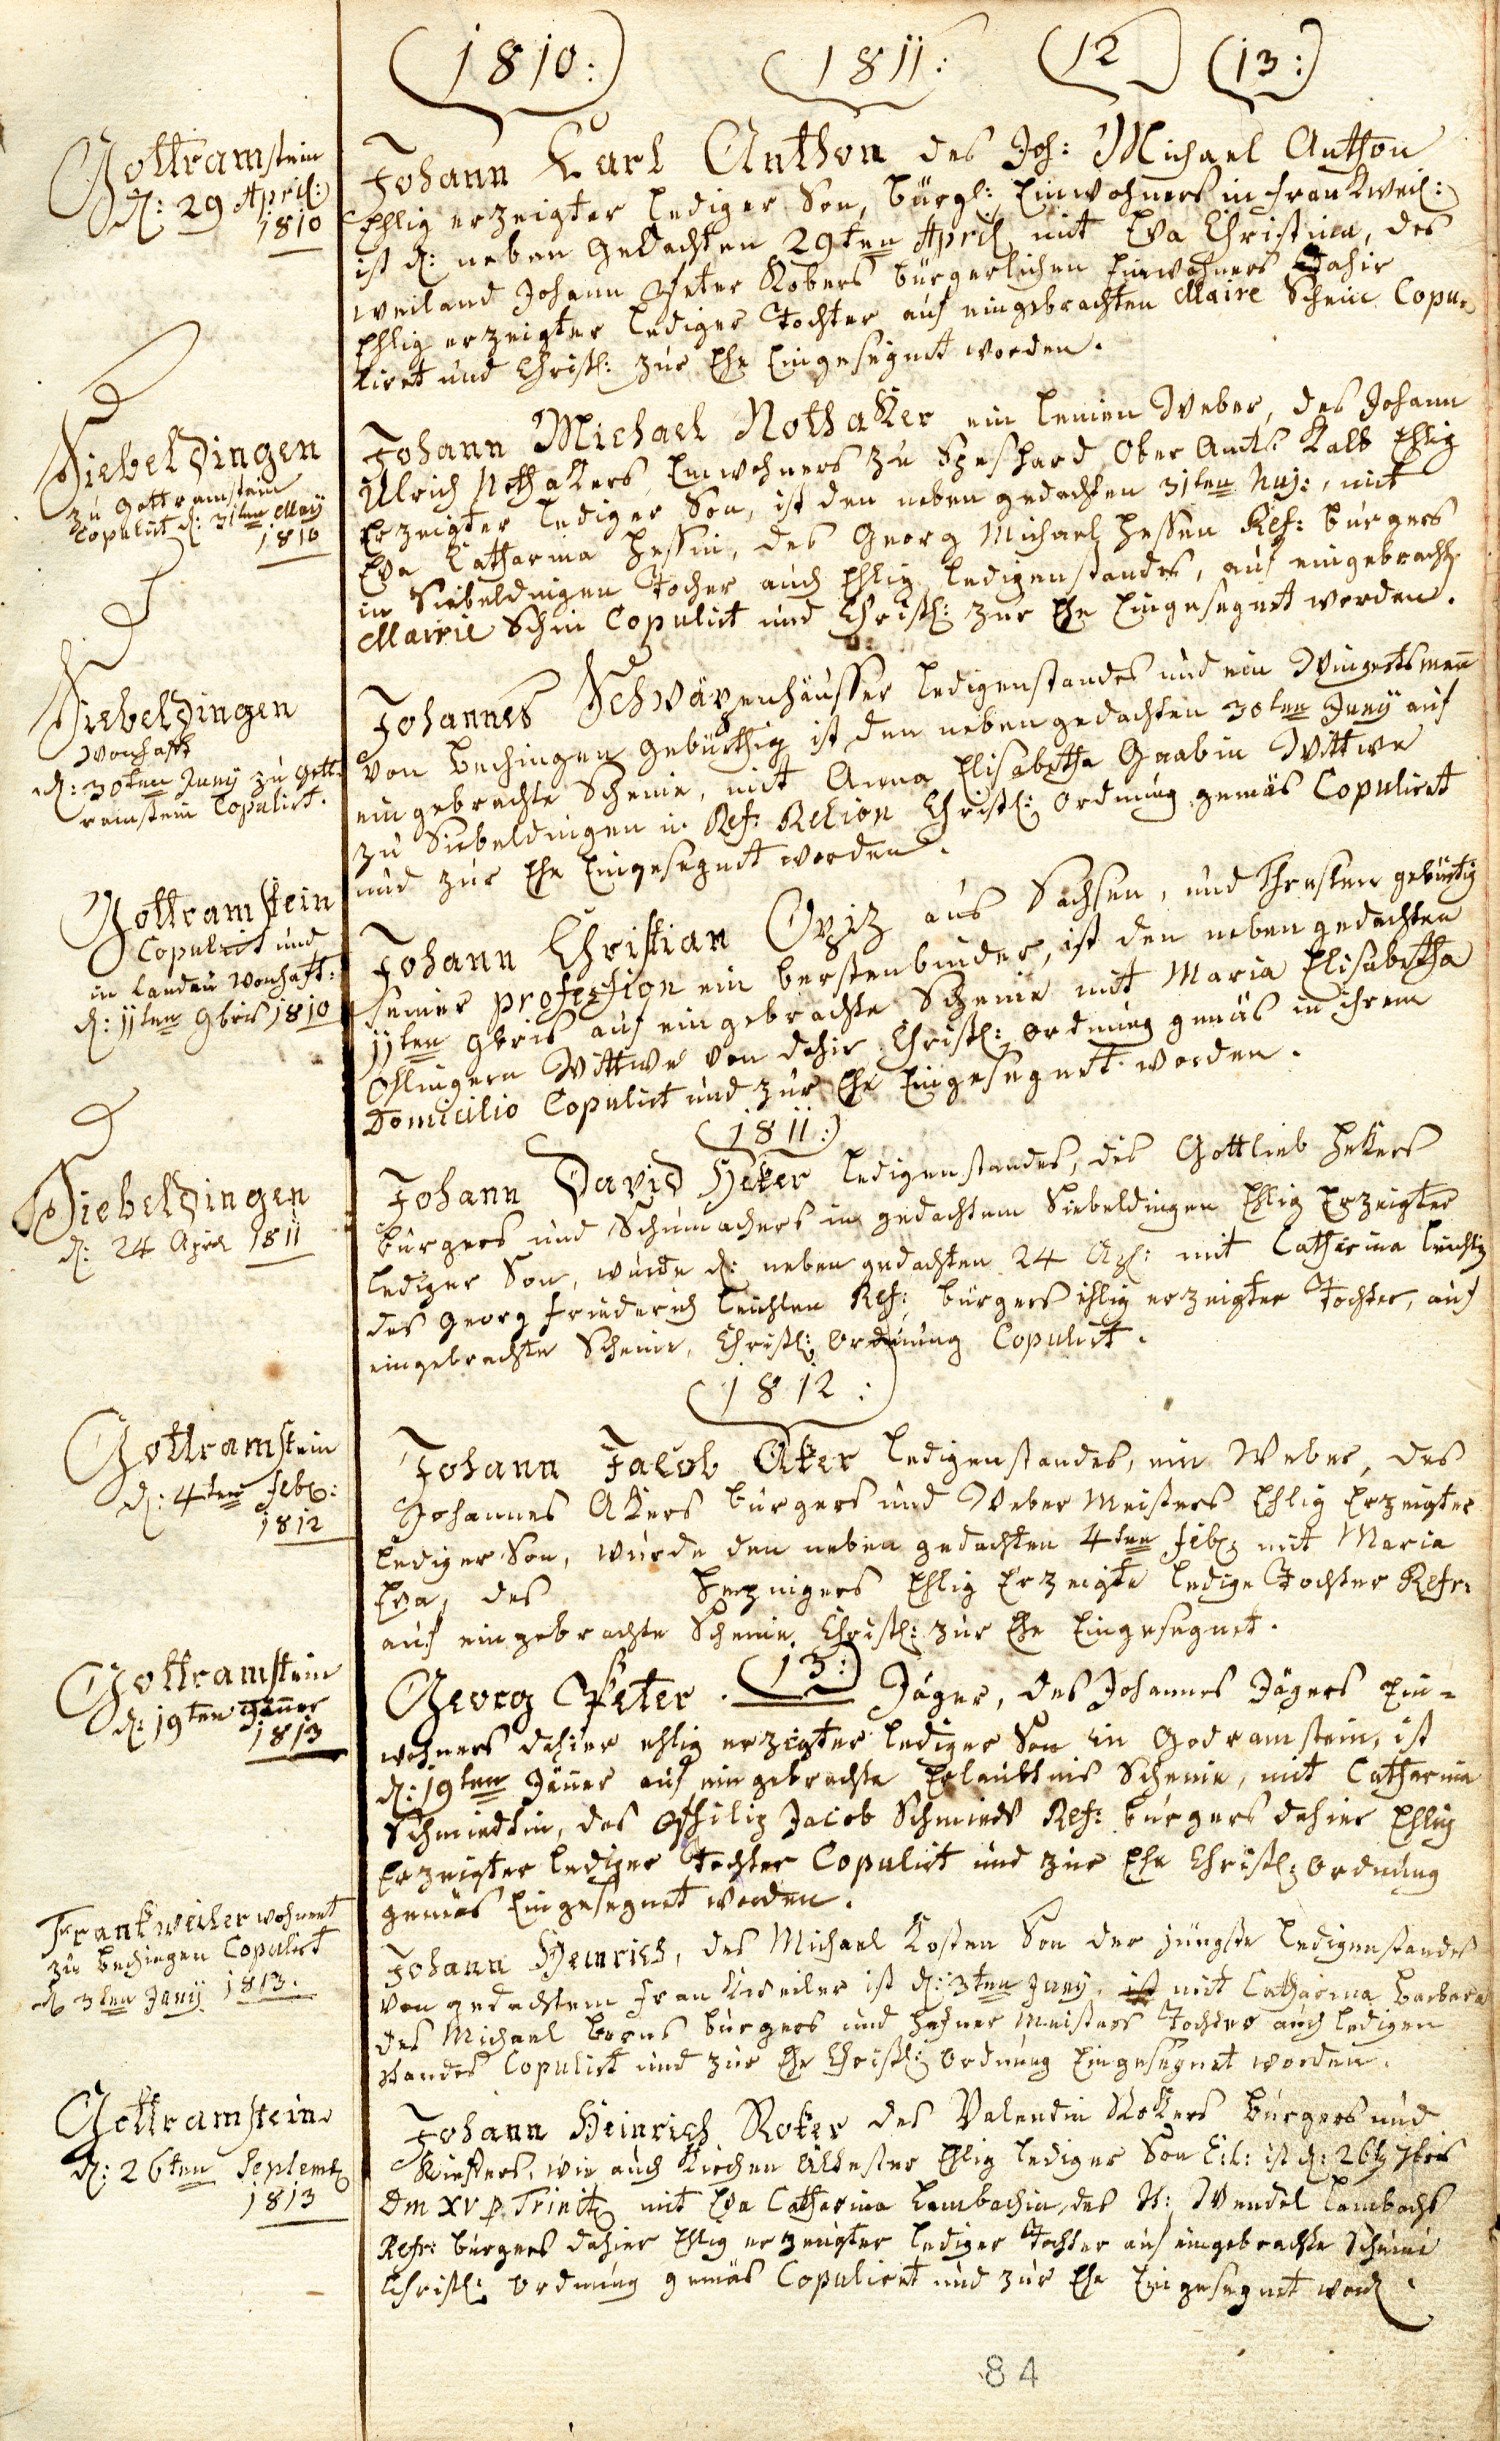 (1810:) (1811: (12) (13:)
Gottramstein
d: 29 April:
1810
Johann Karl Anthon des Joh: Michael Anthon
Ehlig erzeigter lediger Son, bürgl: Einwohners in Frankweil:
ist d: neben gedachten 29ten April, mit Eva Christina, des
weiland Johann Peter Kobers bürgerlichen Einwohners dahir
Ehlig erzeigter lediger Tochter auf eingebrachten Maire Schein Copu-
liret und Christl: zur Ehe Eingesegnet worden.
Siebeldingen
zu Gottramstein
Copulirt d: 31ten Maÿ
1810
Johann Michael Nothaker ein leinen Weber, des Johann
Ulrich Nothakers, Einwohners zu Ober Amts Kalb Ehlig
Erzeigter lediger Son, ist den neben gedachten 31ten huj:, mit
Eva Catharina Hessin, des Georg Michael Hessen Ref: bürgers
in Siebeldingen Tocher auch Ehlig ledigenstandes, auf eingebracht
Mairie Schein Copulirt und Christl: zur Ehe Eingesegnet worden.
Siebeldingen
wonhaft
d: 30ten Junÿ zu Gott-
ramstein Copulirt.
Johannes Schwävenhäusser ledigenstandes und ein Wingertsmañ
von Bechingen gebürthig ist den neben gedachten 30ten Junÿ auf
eingebrachte Scheine, mit Anna Elisabetha Graabin Wittwe
zu Siebeldingen Ref: Relion Christl: ordnung gemäs Copulirt
und zur Ehe Eingesegnet worden.
Gottramstein
Copulirt und
in Landau wonhaft:
d: 11ten 9bris 1810
Johann Christian Opiz aus Sachsen, und gebürtig
seiner profession ein berstenbinder, ist den neben gedachten
11ten 9bris auf eingebrachte Scheine mit Maria Elisabetha
Ohlingern Wittwe von dahir Christl: ordnung gemäs in ihrem
Domicilio Copulirt und zur Ehe Eingesegnet worden.
(1811:)
Siebeldingen
d: 24 April 1811
Johann David Heker ledigenstandes, des Gottlieb Hekers
bürgers und Schumachers in gedachtem Siebeldingen Ehlig Erzeigter
lediger Son, wurde d: neben gedachten 24 Apl: mit Catharina
des Georg Friederich Leichten Ref: bürgers ehlig erzeigter Tochter, auf
eingebrachte Scheine, Christl: ordnung Copulirt.
(1812:)
Gottramstein
d: 4ten Feb:
1812
Johann Jacob Aker ledigenstandes, ein Weber, des
Johannes Akers bürgers und Weber Meisters Ehlig Erzeigter
lediger Son, wurde den neben gedachten 4ten Feb: mit Maria
Eva, des Herzingers Ehlig Erzeigte ledige Tochter Refr:
auf eingebrachte Scheine, Christl: zur Ehe Eingesegnet.
(13:)
Gottramstein
d: 19ten Jeñer
1813
Georg Peter Jäger, des Johannes Jägers Ein-
wohners dahier ehlig erzeigter lediger Son in Godramstein, ist
d: 19ten Jäñer auf eingebrachte Erlaubtnis Scheine, mit Catharina
Schmiedtin, des Philip Jacob Schmieds Ref: bürgers dahier Ehlig
Erzeigter lediger Tochter Copulirt und zur Ehe Christl: ordnung
gemäs Eingesegnet worden.
Frankweiler wohnent
zu Bechingen Copulirt
d 3ten Junÿ 1813.
Johann Heinrich, des Michael Kosten Son der jüngste ledigenstandes
von gedachtem Frankweiler ist d: 3ten Junÿ, mit Catharina Barbara
des Michael Borns bürgers und Hafner Meisters Tochter auch ledigen
standes Copulirt und zur Ehe Christl: ordnung Eingesegnet worden.
Gottramstein
d: 26ten Septemb
1813
Johann Heinrich Roker des Valentin Rokers bürgers und
Kiefers, wie auch Kirchen Ältester Ehlig lediger Son ist d: 26ten 7bris
Dm XV p. Trinit: mit Eva Catharina Lambachin, des H: Wendel Lambachs
Refr: bürgers dahier Ehlig erzeugter lediger Tochter auf eingebrachte Scheine
Christl: ordnung gemäs Copuliret und zur Ehe Eingesegnet word.
84